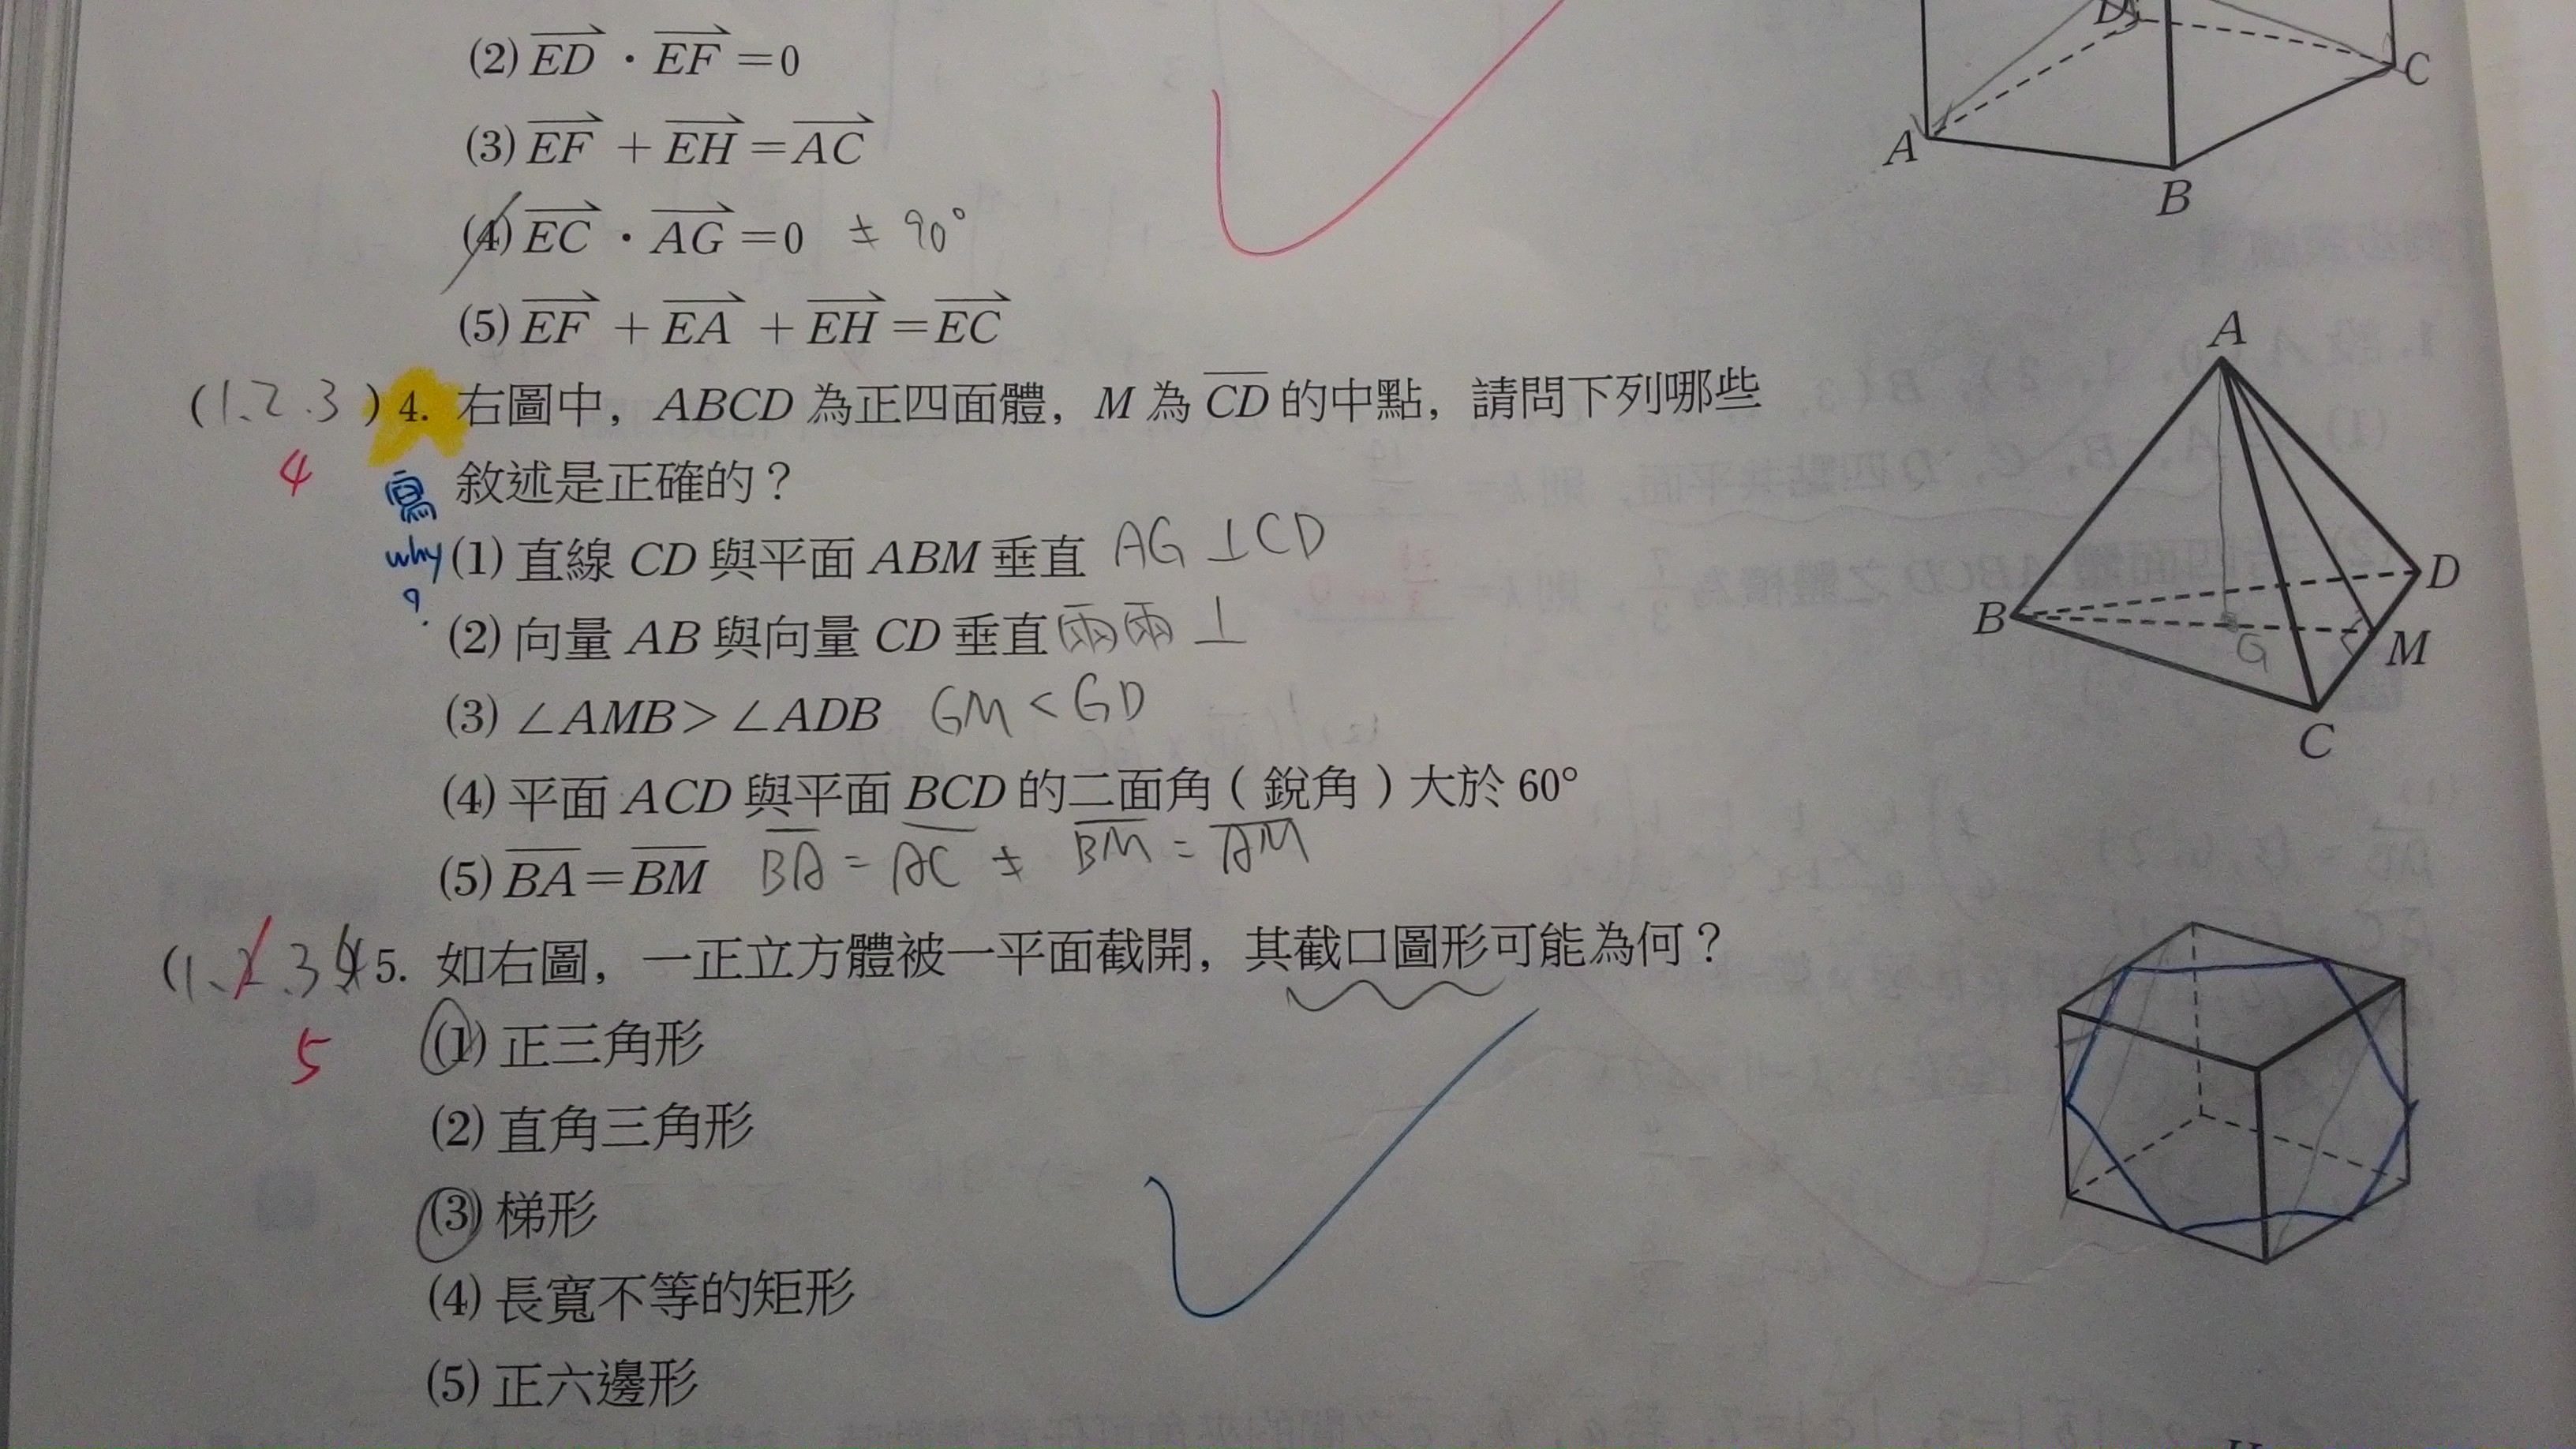 (2) ED · EF =0
(3) EF + EH = AC
(4) EC · AG =0 ≠ 90°
(5) EF + EA + EH = EC
D
C
A
B
(1.2.3 ) 4. 右圖中，ABCD 為正四面體，M 為 CD 的中點，請問下列哪些
4
敘述是正確的？
寫
why
?
(1) 直線 CD 與平面 ABM 垂直 AG⊥CD
(2) 向量 AB 與向量 CD 垂直 兩兩⊥
(3) ∠AMB > ∠ADB GM < GD
(4) 平面 ACD 與平面 BCD 的二面角（銳角）大於 60°
(5) BA = BM BA = AC ≠ BM = AM
A
B
D
G
M
C
(1、2.3 5. 如右圖，一正立方體被一平面截開，其截口圖形可能為何？
5
(1) 正三角形
(2) 直角三角形
(3) 梯形
(4) 長寬不等的矩形
(5) 正六邊形